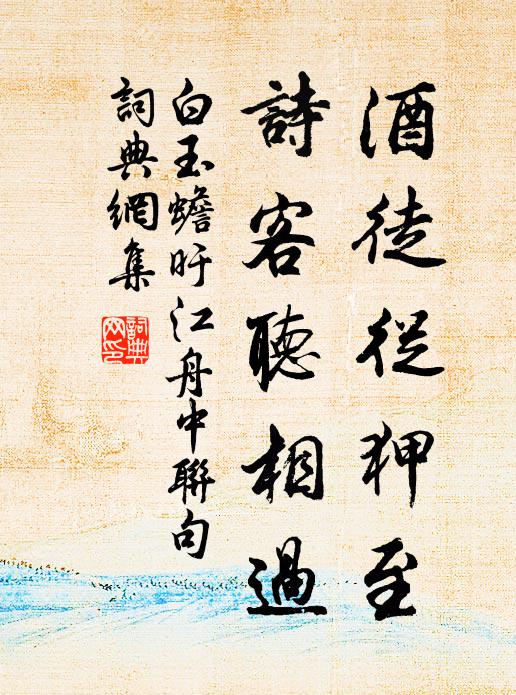 酒徒從狎至
詩客聽相過
白玉蟾盱江舟中聯句
詞典網集
詞典网印